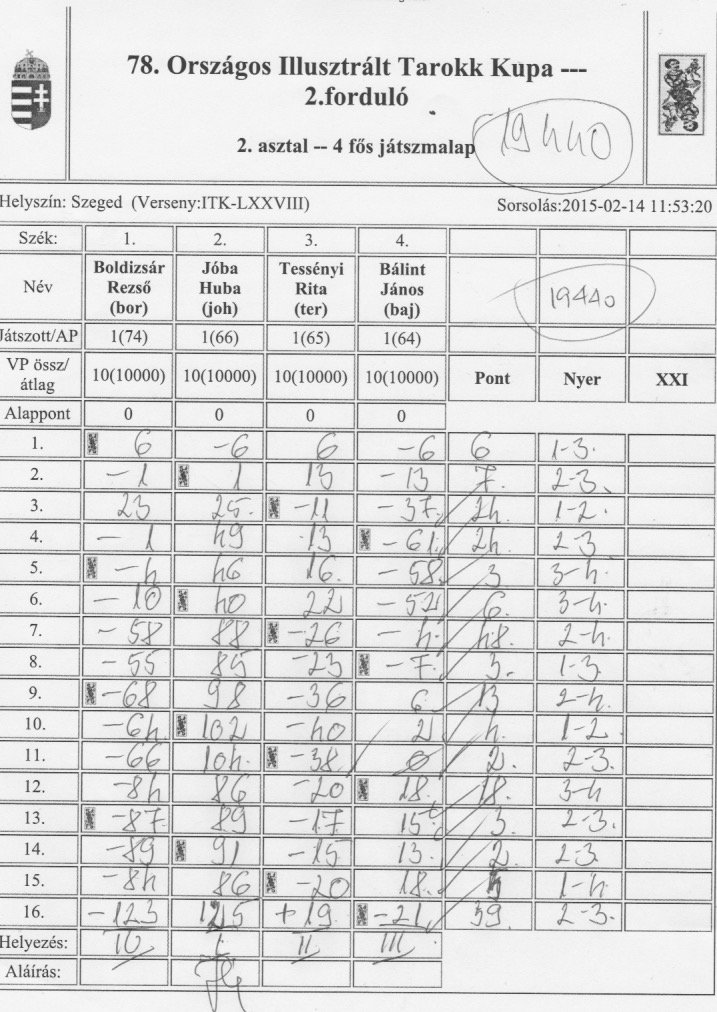 78. Országos Illusztrált Tarokk Kupa ---
2.forduló
19440
2. asztal -- 4 fős játszmalap
Helyszín: Szeged (Verseny:ITK-LXXVIII) Sorsolás:2015-02-14 11:53:20
Szék: 1. 2. 3. 4.
Név Boldizsár Rezső (bor) Jóba Huba (joh) Tessényi Rita (ter) Bálint János (baj) 19440
Játszott/AP 1(74) 1(66) 1(65) 1(64)
VP össz/átlag 10(10000) 10(10000) 10(10000) 10(10000) Pont Nyer XXI
Alappont 0 0 0 0
1. 6 -6 6 -6 6 1-3.
2. -1 1 13 -13 7. 2-3.
3. 23 25. -11 -37. 24. 1-2.
4. -1 49 13 -61. 24. 2-3
5. -4 46 16. -58. 3 3-4.
6. -10 40 22 -52 6. 3-4.
7. -58 88 -26 -4. 48. 2-4.
8. -55 85 -23 -7. 3. 1-3
9. -68 98 -36 6 13 2-4.
10. -64 102 -40 2 4. 1-2
11. -66 104. -38 0 2. 2-3.
12. -84 86 -20 18. 18. 3-4
13. -87 89 -17 15 3. 2-3.
14. -89 91 -15 13. 2. 2-3
15. -84 86 -20 18. 5 1-4.
16. -123 125 +19 -21. 39. 2-3.
Helyezés: IV I II III.
Aláírás: